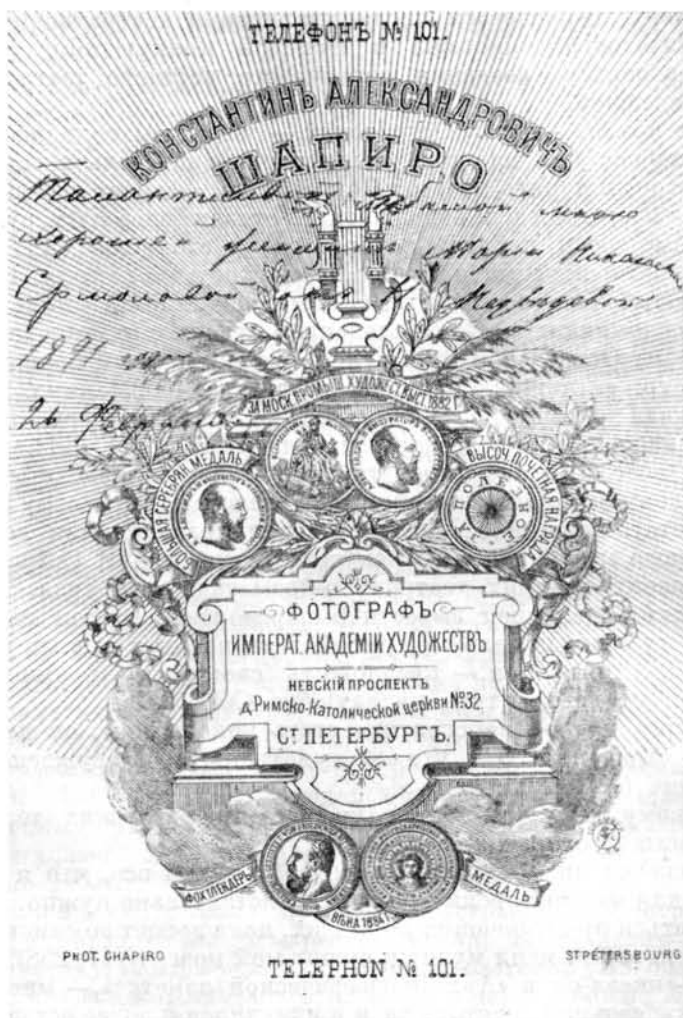 ТЕЛЕФОНЪ № 101.
КОНСТАНТИНЪ АЛЕКСАНДРОВИЧЪ
ШАПИРО
Талантливой мною
хорошей женщине Марьи
Ермоловой отъ Н. Медвѣдевой
1891 года
26 Февраля
ЗА МОСК. ПРОМЫШ. ХУДОЖЕСТ. ВЫСТ. 1882 Г.
БОЛЬШАЯ СЕРЕБРЯН. МЕДАЛЬ
ВЫСОЧ. ПОЧЕТНАЯ НАГРАДА
ЗА ПОЛЕЗНОЕ
ФОТОГРАФЪ
ИМПЕРАТ. АКАДЕМІИ ХУДОЖЕСТВЪ
НЕВСКІЙ ПРОСПЕКТЪ
д. Римско-Католической церкви № 32.
Сᵀ ПЕТЕРБУРГЪ.
ФОХТЛЕНДЕРЪ
МЕДАЛЬ
ВѢНА 1884 Г.
PHOT. CHAPIRO
ST PÉTERSBOURG
TELEPHON № 101.